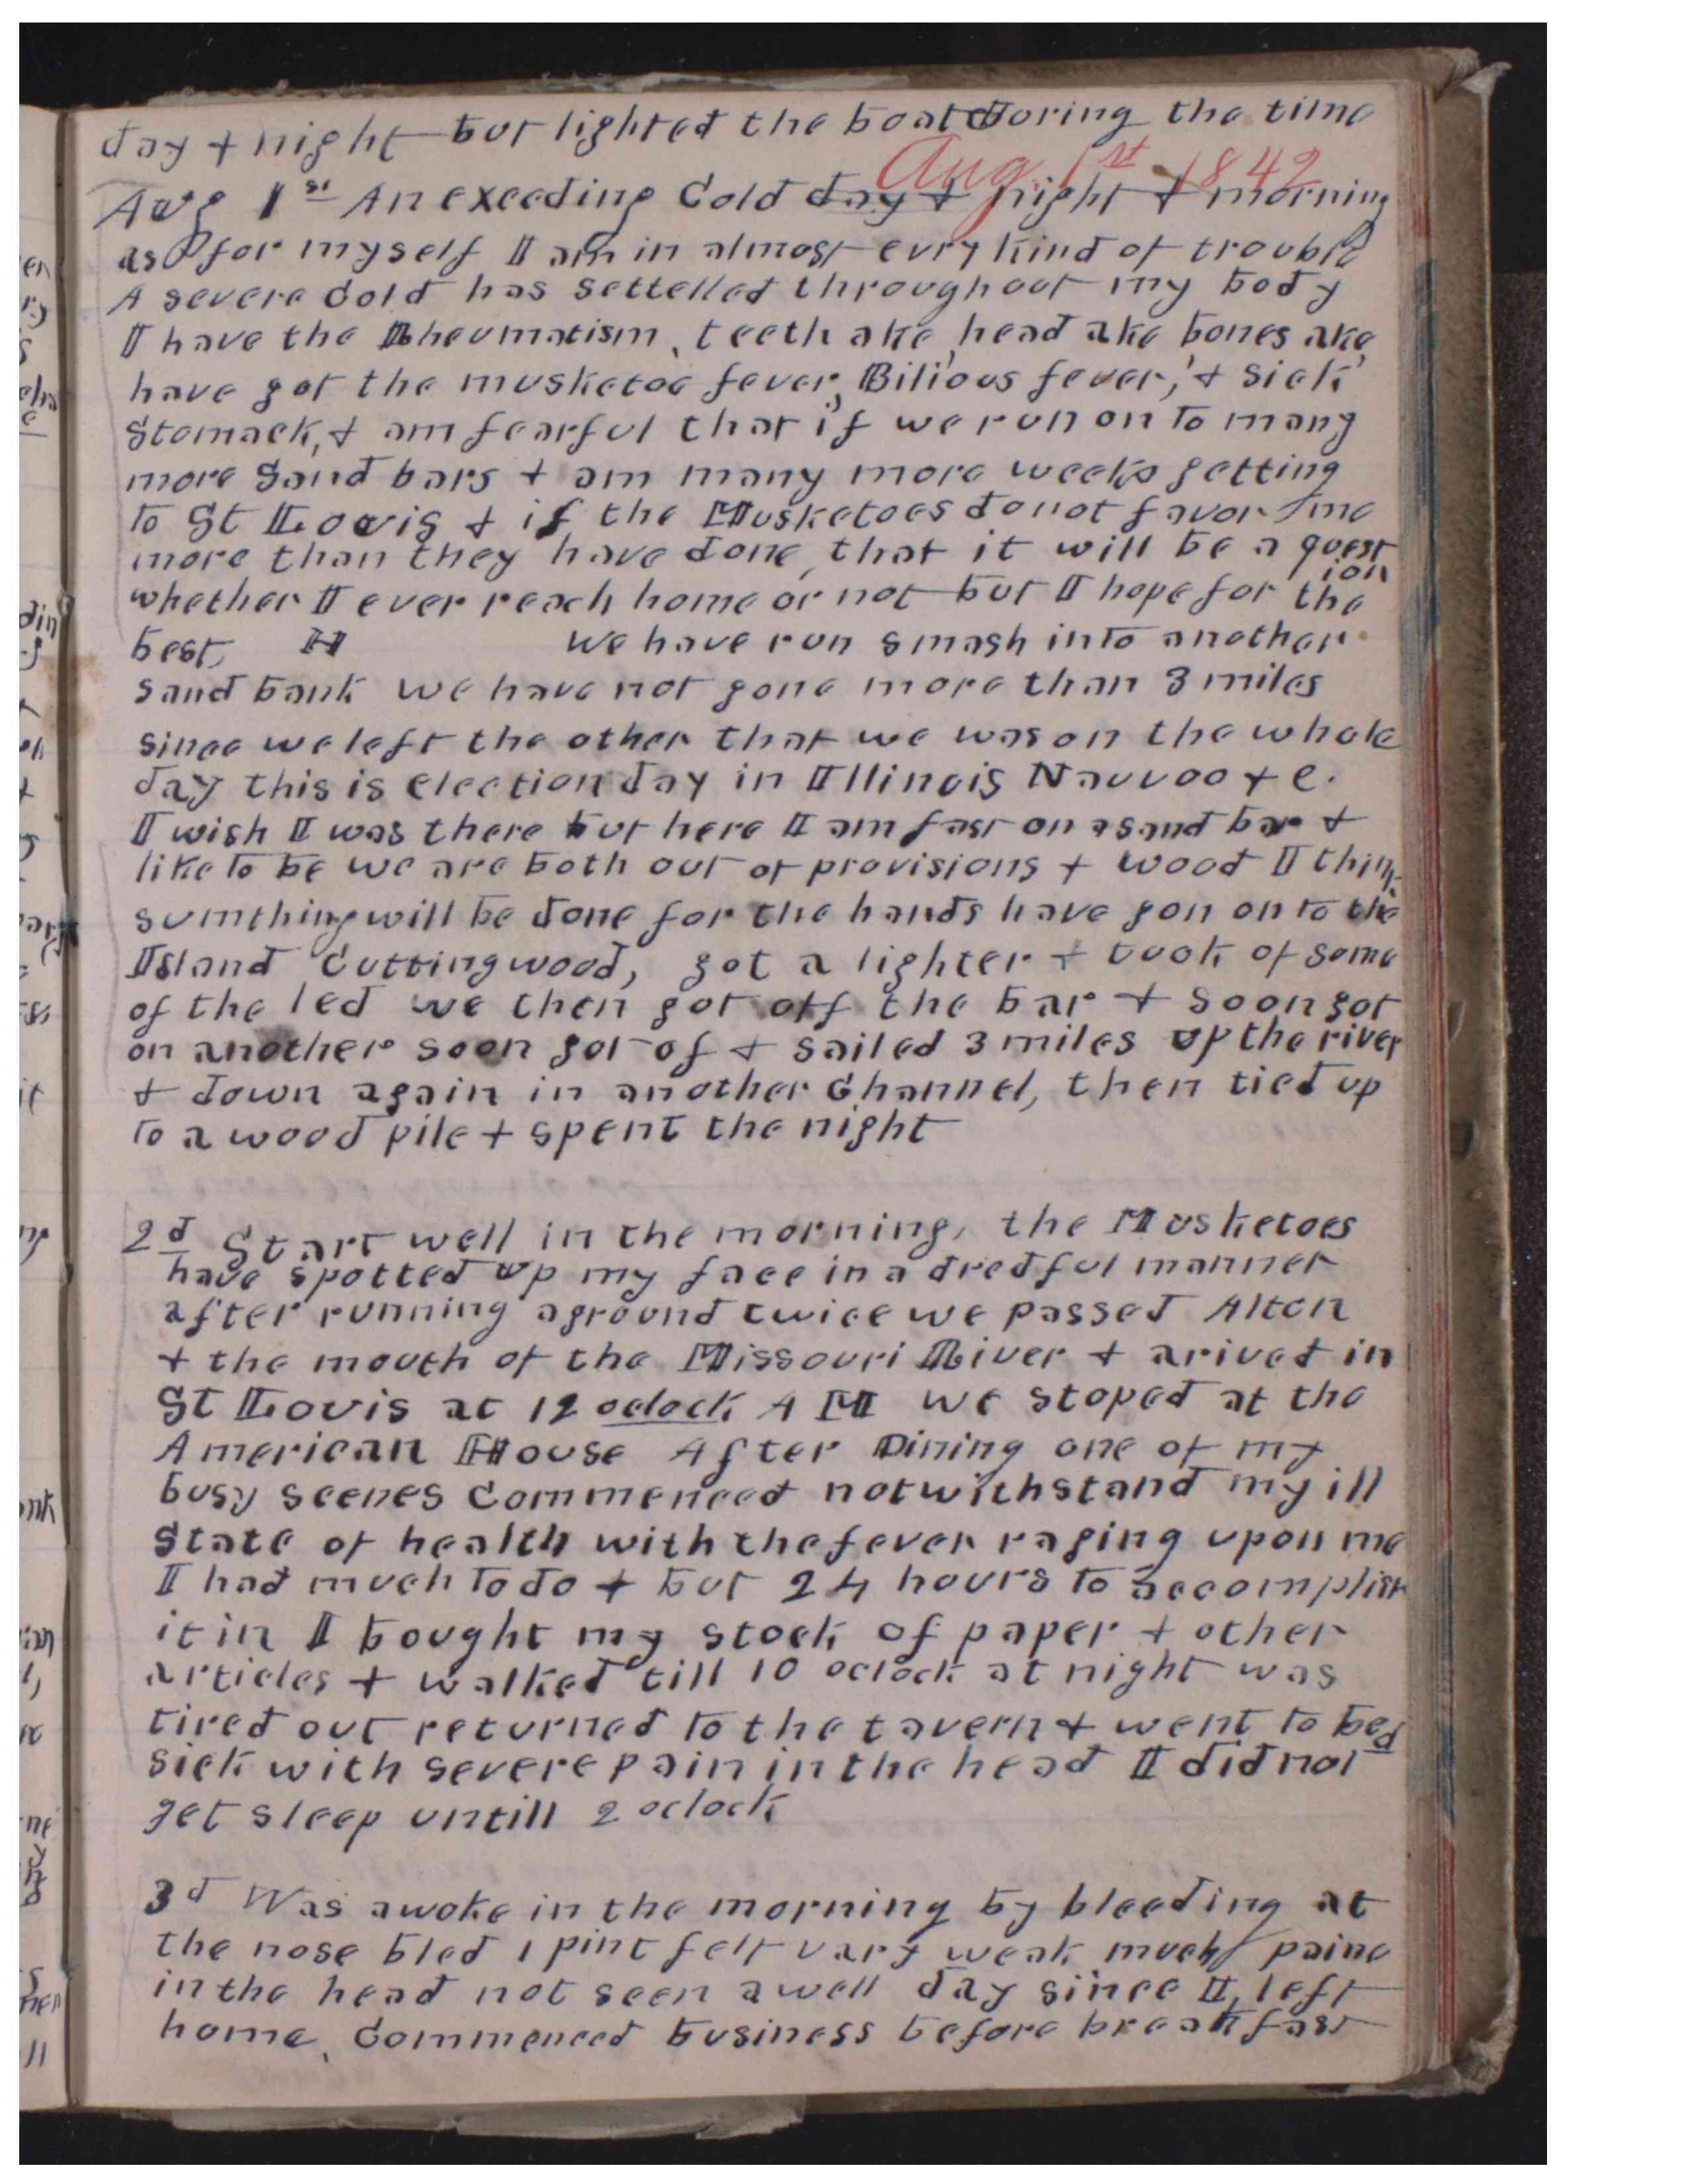 day & night but lighted the boat During the time
Aug. 1st 1842
Aug 1st An exceeding Cold day & night & morning
as for myself I am in almost evry kind of trouble
A severe Cold has settelled throughout my body
I have the Rheumatism, teeth ake, head ake bones ake,
have got the musketoe fever, Bilious fever, & sick
Stomack, & am fearful that if we run on to many
more Sand bars & am many more weeks getting
to St Louis & if the Musketoes do not favor me
more than they have done, that it will be a quest
ion
whether I ever reach home or not but I hope for the
best, H We have run smash into another
sand bank we have not gone more than 3 miles
since we left the other that we was on the whole
day this is election day in Illinois Nauvoo & c.
I wish I was there but here I am fast on a sand bar &
like to be we are both out of provisions & wood I think
sumthing will be done for the hands have gon on to the
Island Cutting wood, got a lighter & took of some
of the led we then got off the bar & soon got
on another soon got of & sailed 3 miles up the river
& down again in another Channel, then tied up
to a wood pile & spent the night
2d Start well in the morning, the Musketoes
have spotted up my face in a dredful manner
after running aground twice we passed Alton
& the mouth of the Missouri River & arived in
St Louis at 12 oclock A M we stoped at the
American House After Dining one of my
busy scenes Commenced notwithstand my ill
State of health with the fever raging upon me
I had much to do & but 24 hours to accomplish
it in I bought my stock of paper & other
articles & walked till 10 oclock at night was
tired out returned to the tavern & went to bed
sick with severe pain in the head I did not
get sleep untill 2 oclock
3d Was awoke in the morning by bleeding at
the nose bled 1 pint felt vary weak much paine
in the head not seen a well day since I left
home, Commenced business before breakfast